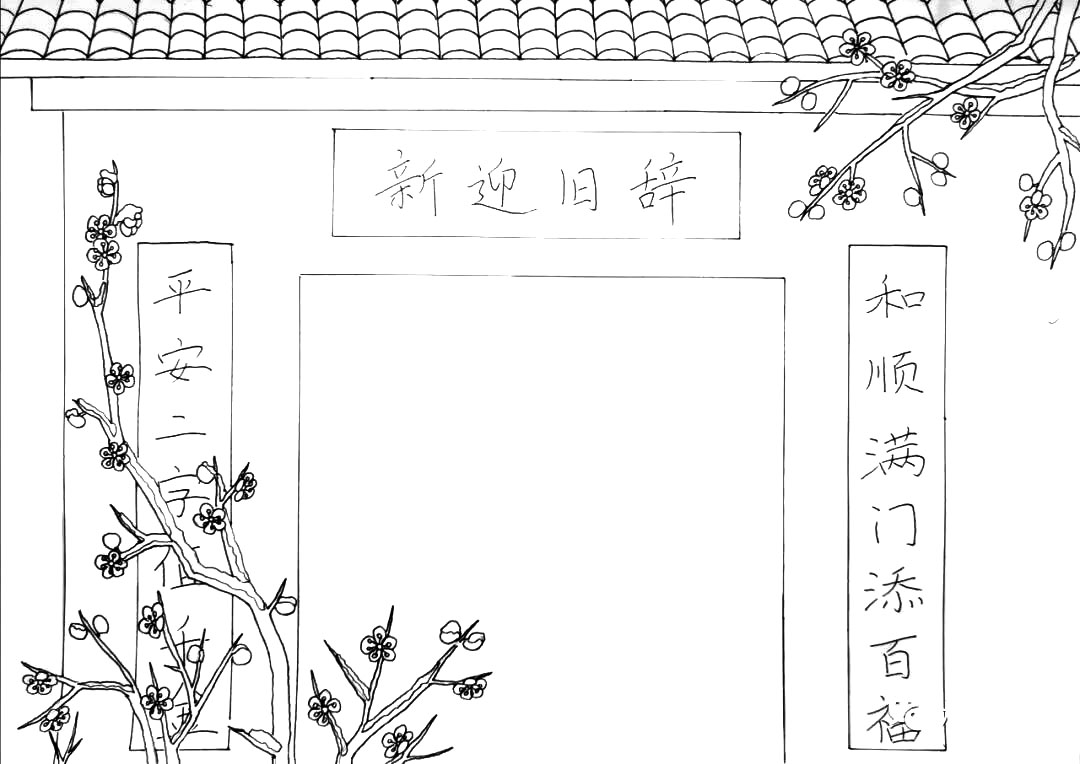 新迎旧辞
和顺满门添百福
平安二字值千金